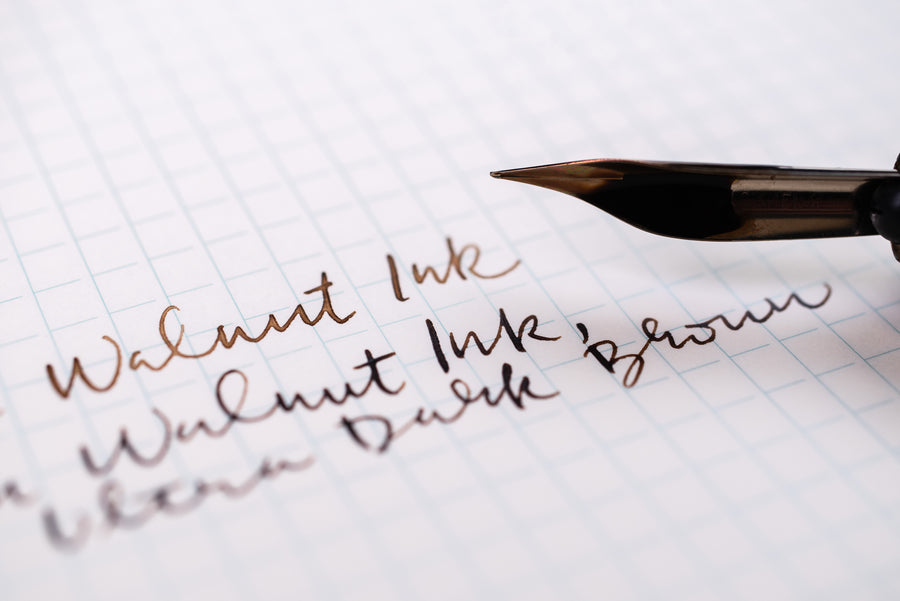 Walnut Ink
Walnut Ink,
Ultra Dark Brown